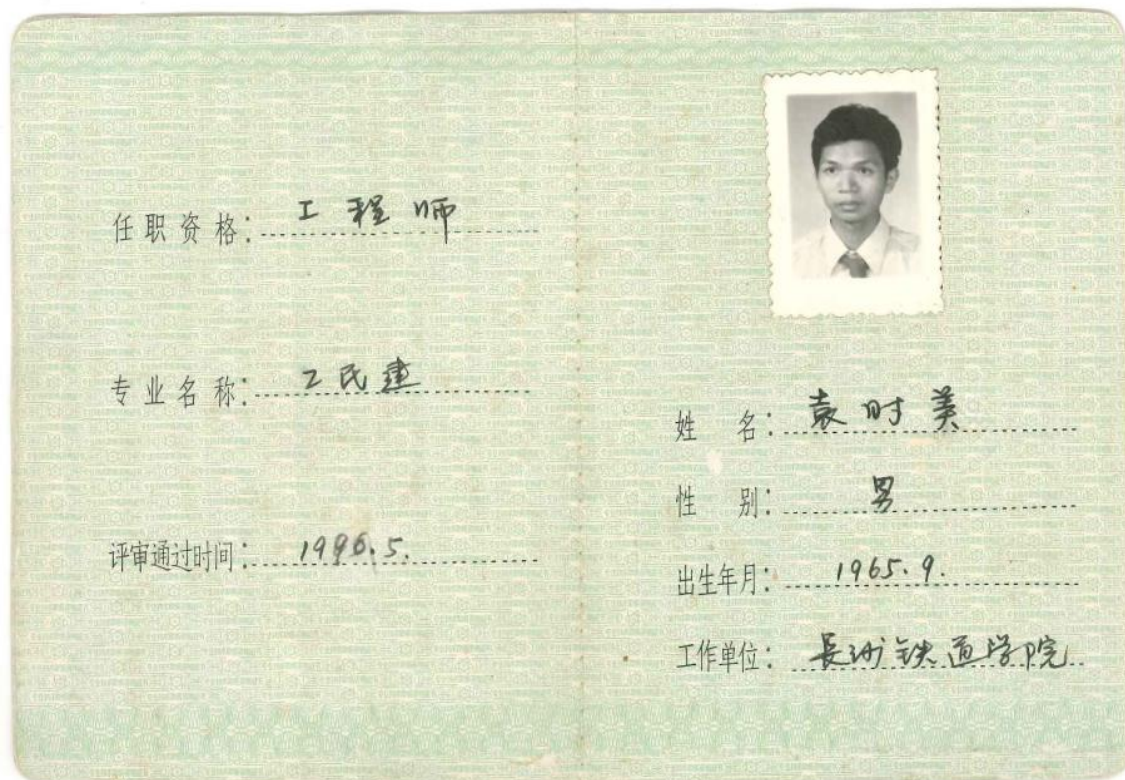 任职资格：工程师
专业名称：工民建
评审通过时间：1996.5.
姓名：袁时美
性别：男
出生年月：1965.9.
工作单位：長沙铁道学院